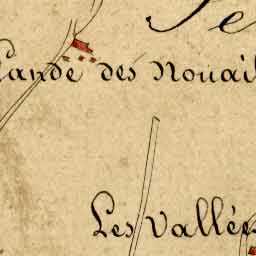 Lande des Nouail
Les Vallées